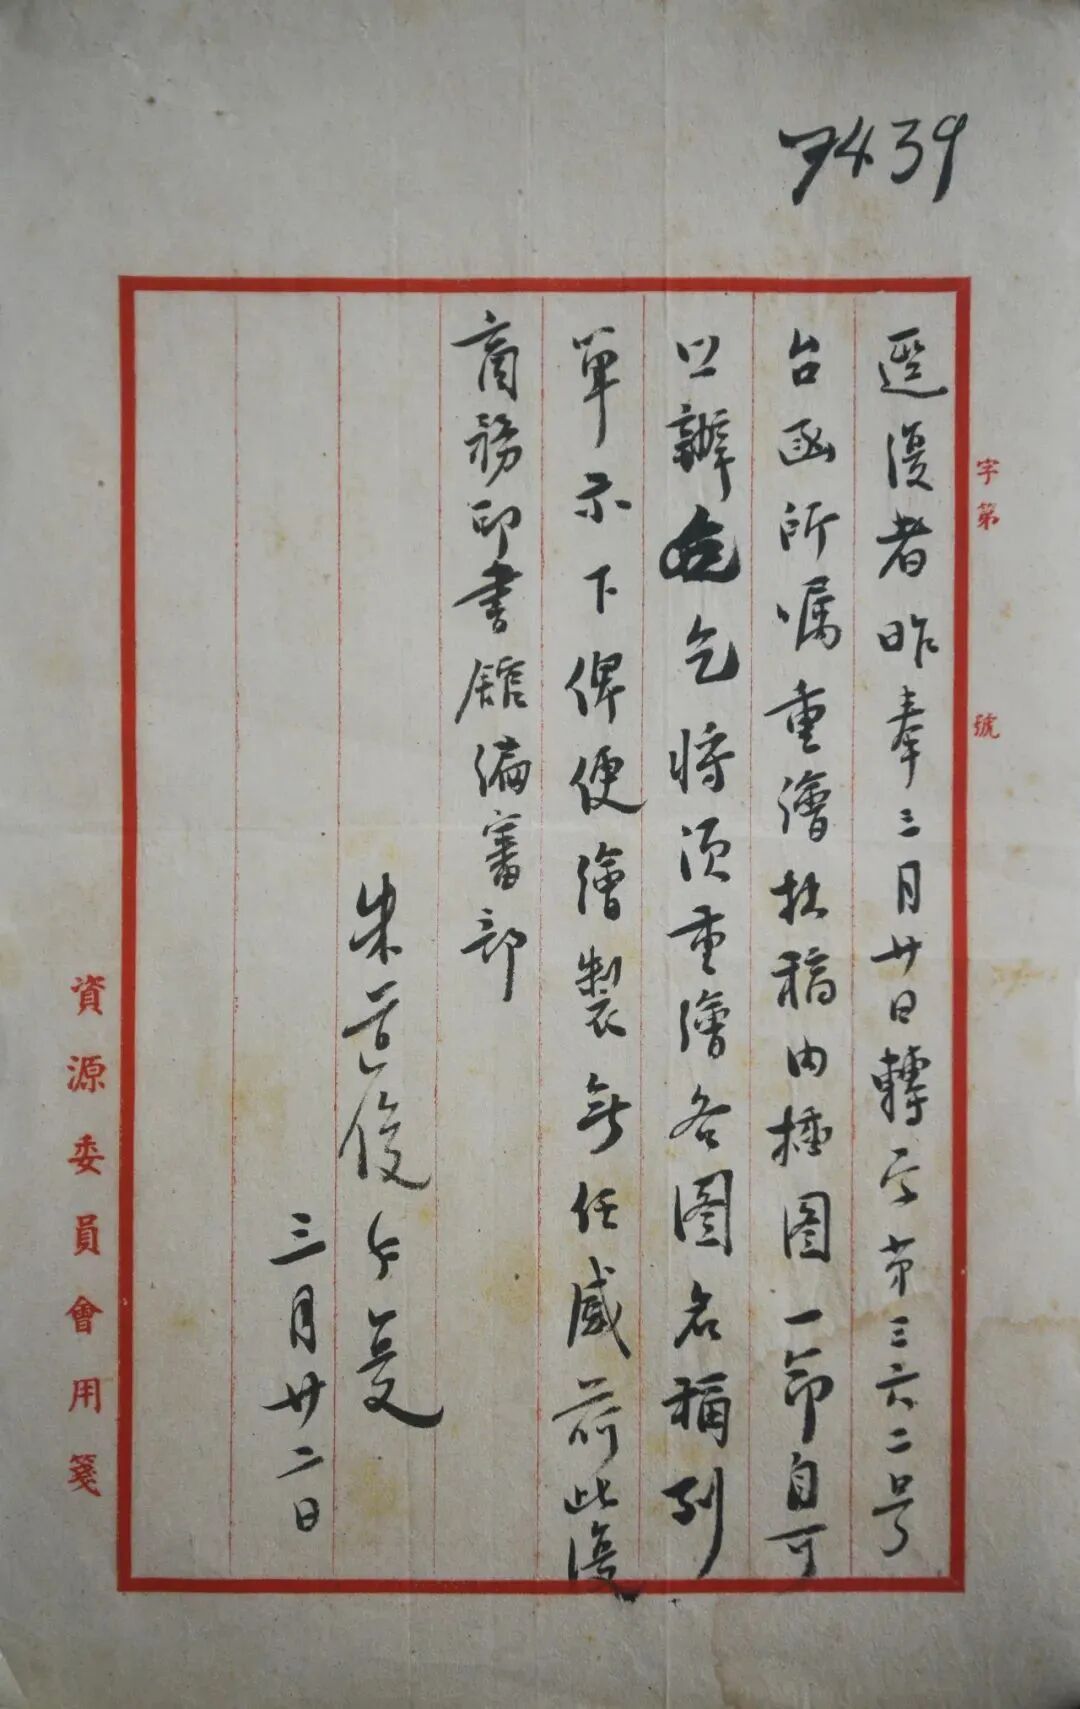 439
字第 號
逕復者昨奉三月廿日轉字第三六二号
台函所嘱重繪拙稿内插圖一節自可
照辦乞將須重繪各圖名稱列
單示下俾便繪製無任感荷此復
商務印書館編審部
朱俊
三月廿二日
資源委員會用箋